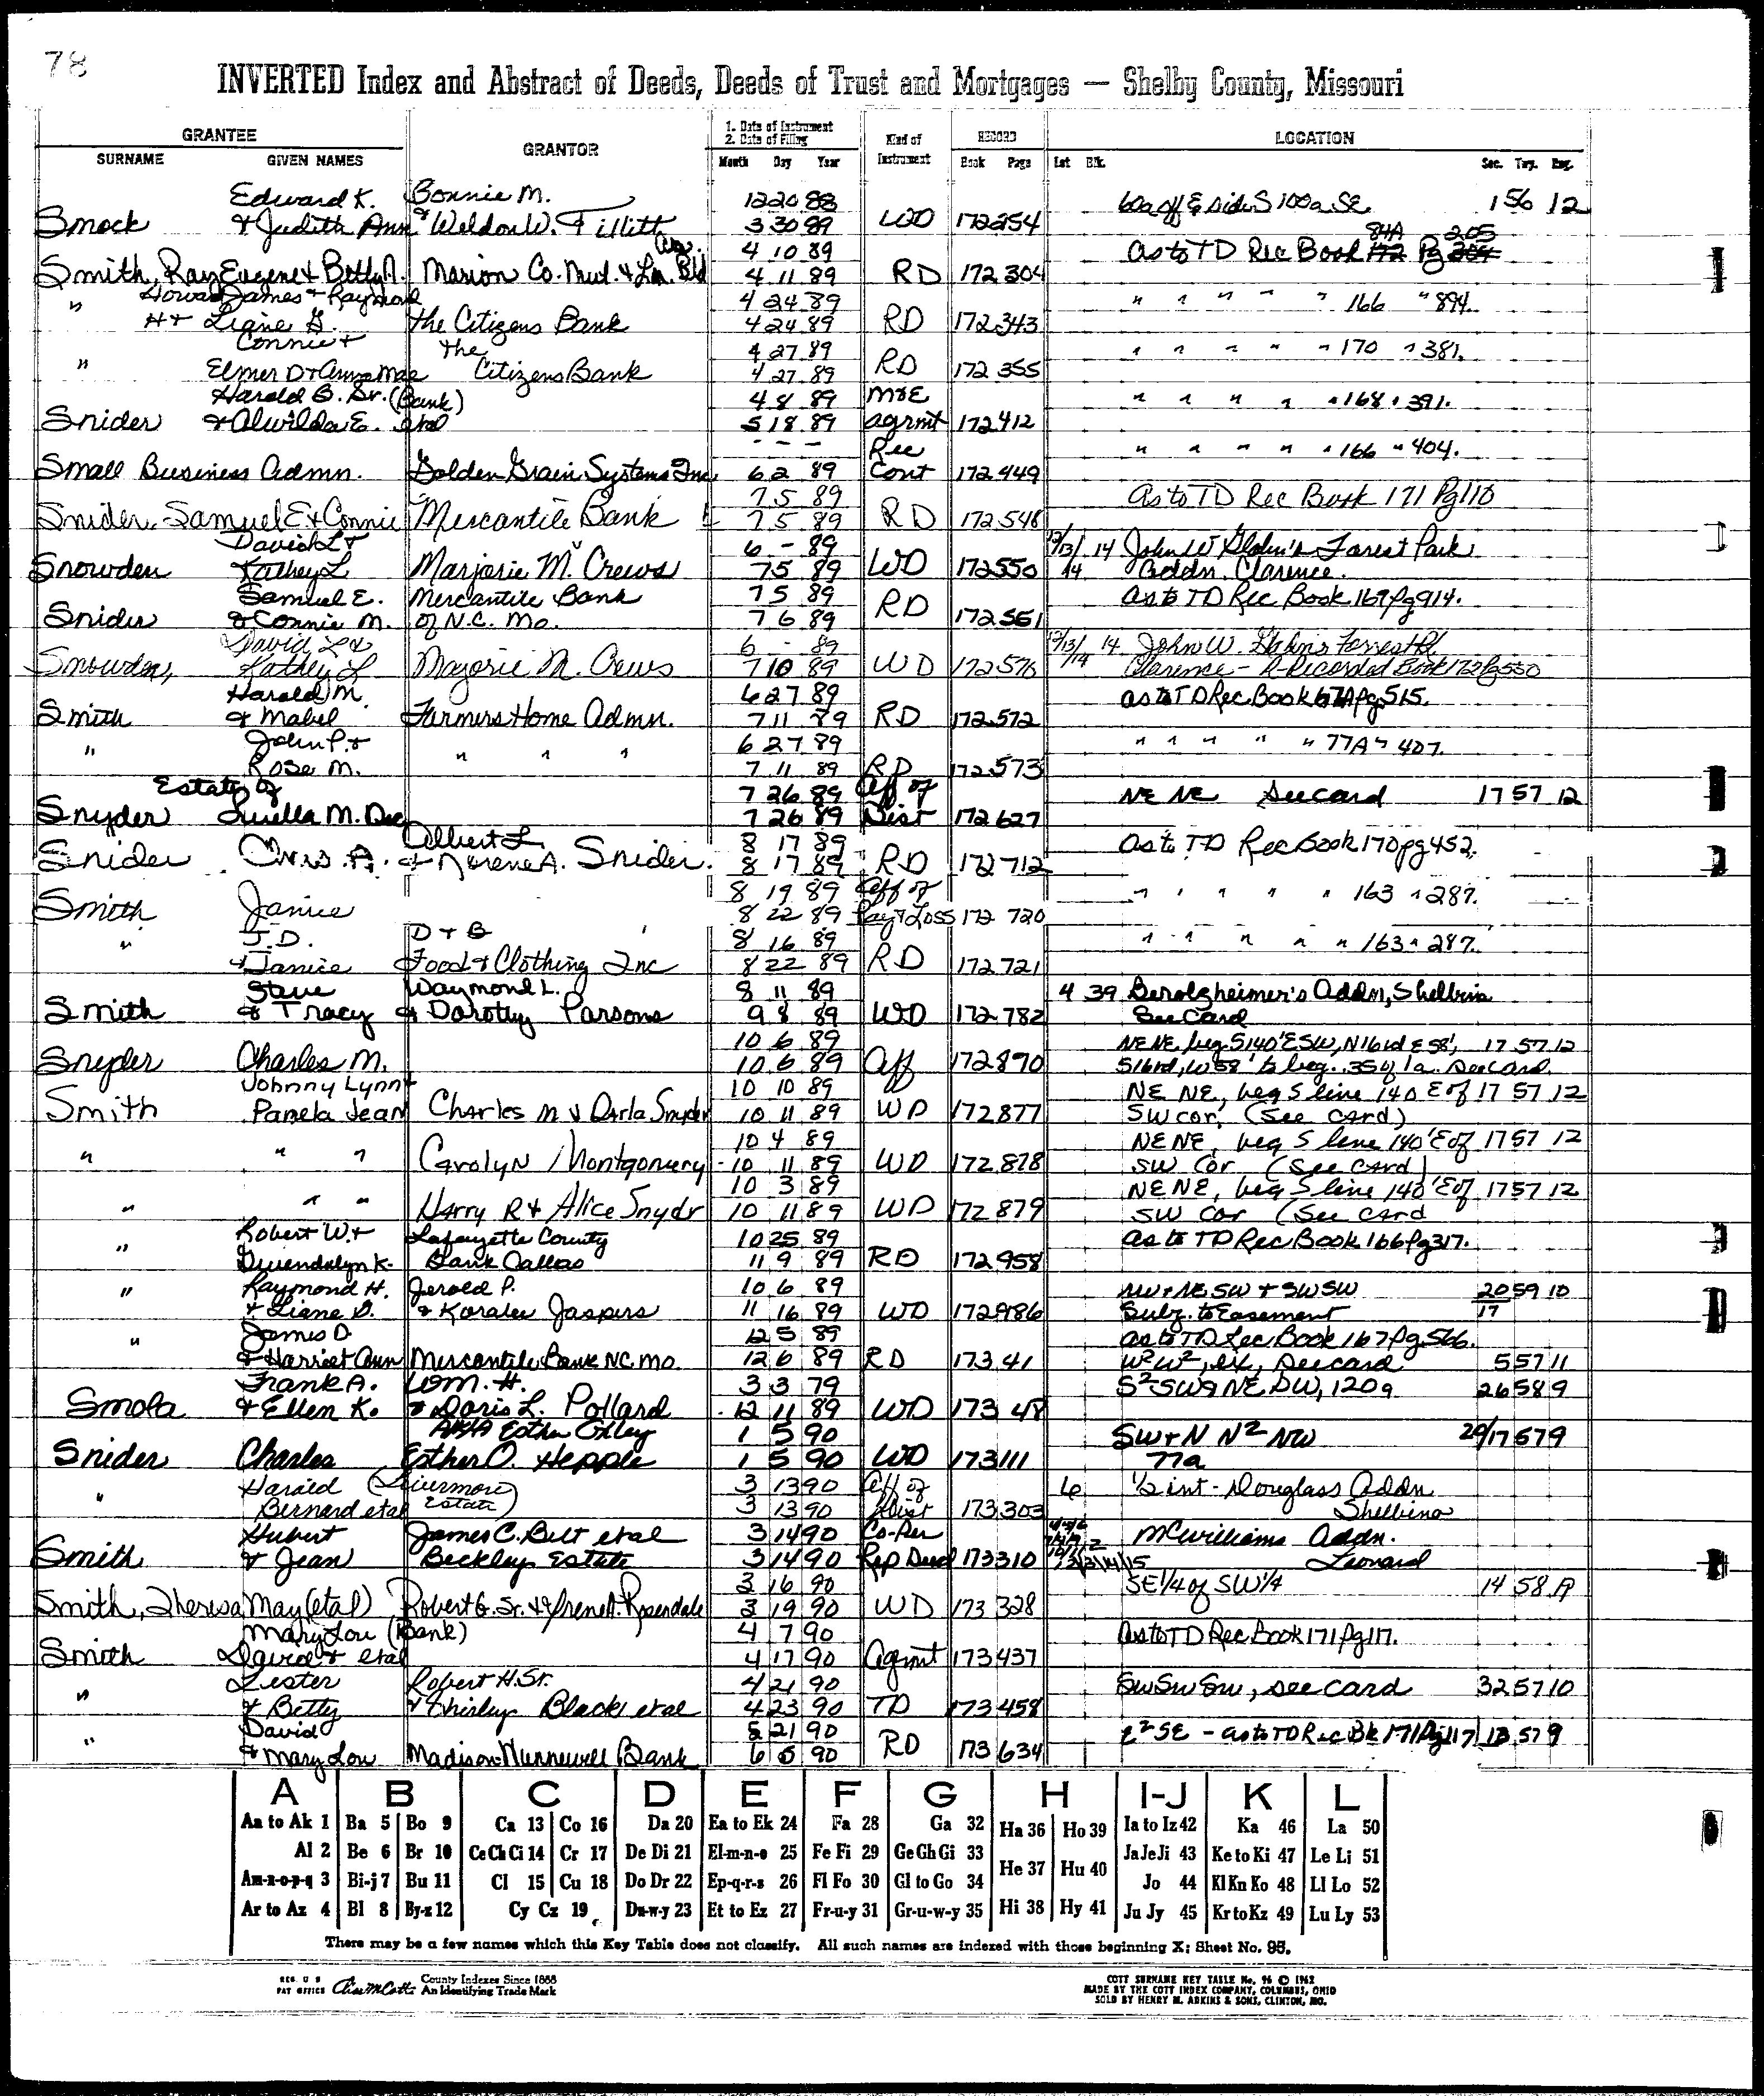 78
INVERTED Index and Abstract of Deeds, Deeds of Trust and Mortgages — Shelby County, Missouri
GRANTEE GRANTOR 1. Date of Instrument 2. Date of Filing Kind of Instrument RECORD LOCATION
SURNAME GIVEN NAMES Month Day Year Book Page Lot Blk. Sec. Twp. Rng.
Edward K. Bonnie M. 12 20 88 60a off E side S 100a SE 1 56 12
Smock & Judith Ann & Weldon W. Tillitt 3 30 89 WD 172 254
Ass. 4 10 89 As to TD Rec Book 84A Pg 205
Smith, Ray Eugene & Betty J. Marion Co. Mut. & Ln. Bld 4 11 89 RD 172 304
Howard James & Raymond 4 24 89 " " " " " 166 " 894.
" H & Liane G. The Citizens Bank 4 24 89 RD 172 343
Connie & The 4 27 89 " " " " " 170 " 381.
" Elmer D & Anna Mae Citizens Bank 4 27 89 RD 172 355
Harold B. Sr. (Bank) 4 8 89 M&E " " " " " 168 " 391.
Snider & Alwilda E. etal 5 18 89 agrmt 172 412
- - - Rec " " " " " 166 " 404.
Small Business Admn. Golden Grain Systems Inc 6 2 89 Cont 172 449
7 5 89 As to TD Rec Book 171 Pg 110
Snider, Samuel E & Connie Mercantile Bank 7 5 89 RD 172 548
David L & 6 - 89 12/13/ 14 John W Forest Park
Snowden Kathey L Marjorie M. Crews 7 5 89 WD 172 550 14 Addn. Clarence.
Samuel E. Mercantile Bank 7 5 89 As to TD Rec Book 169 Pg 914.
Snider & Connie M. of N.C. Mo. 7 6 89 RD 172 561
David L & 6 - 89 12/13/ 14 John W. Forrest Pk
Snowden, Kathey L Marjorie M. Crews 7 10 89 WD 172 576 /14 Clarence - Re-Recorded Book 172 Pg 550
Harold M. 6 27 89 As to TD Rec Book 67A Pg 515.
Smith & Mabel Farmers Home Admn. 7 11 89 RD 172 572
John P. & 6 27 89 " " " " " 77A " 407.
" Rose M. " " " 7 11 89 RD 172 573
Estate of 7 26 89 Aff of NE NE See card 17 57 12
Snyder Luella M. Dec 7 26 89 Dist 172 627
Albert L. 8 17 89 As to TD Rec Book 170 pg 452.
Snider Chris A. & Norene A. Snider. 8 17 89 RD 172 712
8 19 89 Aff of " " " " " 163 " 287.
Smith Janice 8 22 89 Pay & Loss 172 720
" J.D. D & G 8 16 89 " " " " " 163 " 287.
& Janice Food & Clothing Inc 8 22 89 RD 172 721
Steve Waymond L. 8 11 89 4 39 Berolzheimer's Addn, Shelbina
Smith & Tracy & Dorothy Parsons 9 8 89 WD 172 782 See Card
10 6 89 NE NE, beg. S 140' E SW, N 16rd E 58', 17 57 12
Snyder Charles M. 10 6 89 Aff 172 890 S 16rd, W 58' to beg. .35 of 1a. See card
Johnny Lynn & 10 10 89 NE NE, beg S line 140 E of 17 57 12
Smith Pamela Jean Charles M & Darla Snyder 10 11 89 WD 172 877 SW cor. (See card)
10 4 89 NE NE, beg S line 140' E of 17 57 12
" " " Carolyn Montgomery 10 11 89 WD 172 878 SW Cor (See Card)
10 3 89 NE NE, beg S line 140' E of 17 57 12
" " " Harry R & Alice Snydr 10 11 89 WD 172 879 SW Cor (See Card
Robert W. & Lafayette County 10 25 89 As to TD Rec Book 166 Pg 317.
" Gwendalyn K. Bank Dallas 11 9 89 RD 172 958
" Raymond H. Jerold P. 10 6 89 NW & NE SW & SW SW 20 59 10
& Liane D. & Koralee Jaspers 11 16 89 WD 172 986 Subj. to Easement 17
" James D 12 5 89 As to TD Rec Book 167 Pg 566.
& Harriet Ann Mercantile Bank NC. Mo. 12 6 89 RD 173 41 W² W², ex, See card 5 57 11
Frank A. Wm. H. 3 3 79 S² SW & NE SW, 120a 26 58 9
Smola & Ellen K. & Doris L. Pollard 12 11 89 WD 173 48
AKA Esther Oxley 1 5 90 SW & N N² NW 29/17 57 9
Snider Charles Esther O. Hepple 1 5 90 WD 173 111 77a
" Harald (Livermore 3 13 90 Aff of 6 1/2 int - Douglass Addn
Bernard etal Estate) 3 13 90 Dist 173 303 Shelbina
Hubert James C. Bilt etal 3 14 90 Co-Per McWilliams Addn.
Smith & Jean Beckley Estate 3 14 90 Rep Deed 173 310 Leonard
3 16 90 SE 1/4 of SW 1/4 14 58 9
Smith, Theresa May (etal) Robert G. Sr. & Irene A. Rosendale 3 19 90 WD 173 328
Mary Lou (Bank) 4 7 90 As to TD Rec Book 171 Pg 17.
Smith David & etal 4 17 90 Agmt 173 437
" Lester Robert H. Sr. 4 21 90 SW SW SW, see card 32 57 10
& Betty & Shirley Black etal 4 23 90 TD 173 458
" David 5 21 90 E² SE - as to TD Rec Bk 171 Pg 117 13 57 9
& Mary Lou Madison-Hunnewell Bank 6 5 90 RD 173 634
A B C D E F G H I-J K L
Aa to Ak 1 Ba 5 Bo 9 Ca 13 Co 16 Da 20 Ea to Ek 24 Fa 28 Ga 32 Ha 36 Ho 39 Ia to Iz 42 Ka 46 La 50
Al 2 Be 6 Br 10 Ce Ch Ci 14 Cr 17 De Di 21 El-m-n-o 25 Fe Fi 29 Ge Gh Gi 33 He 37 Hu 40 Ja Je Ji 43 Ke to Ki 47 Le Li 51
Am-n-o-p-q 3 Bi-j 7 Bu 11 Cl 15 Cu 18 Do Dr 22 Ep-q-r-s 26 Fl Fo 30 Gl to Go 34 Jo 44 Kl Kn Ko 48 Ll Lo 52
Ar to Az 4 Bl 8 By-z 12 Cy Cz 19 Du-w-y 23 Et to Ez 27 Fr-u-y 31 Gr-u-w-y 35 Hi 38 Hy 41 Ju Jy 45 Kr to Kz 49 Lu Ly 53
There may be a few names which this Key Table does not classify. All such names are indexed with those beginning X; Sheet No. 95.
REG. U S PAT OFFICE County Indexes Since 1888
An Identifying Trade Mark
COTT SURNAME KEY TABLE No. 96 © 1962
MADE BY THE COTT INDEX COMPANY, COLUMBUS, OHIO
SOLD BY HENRY M. ADKINS & SONS, CLINTON, MO.